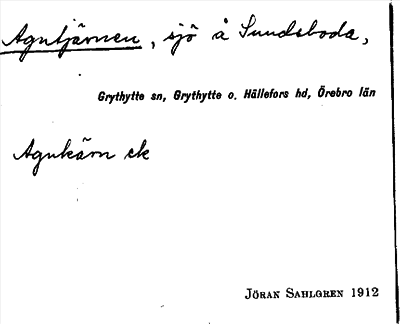 Agntjärnen, sjö å Sundsboda,
Grythytte sn, Grythytte o. Hällefors hd, Örebro län
Agnkärn ek
JÖRAN SAHLGREN 1912